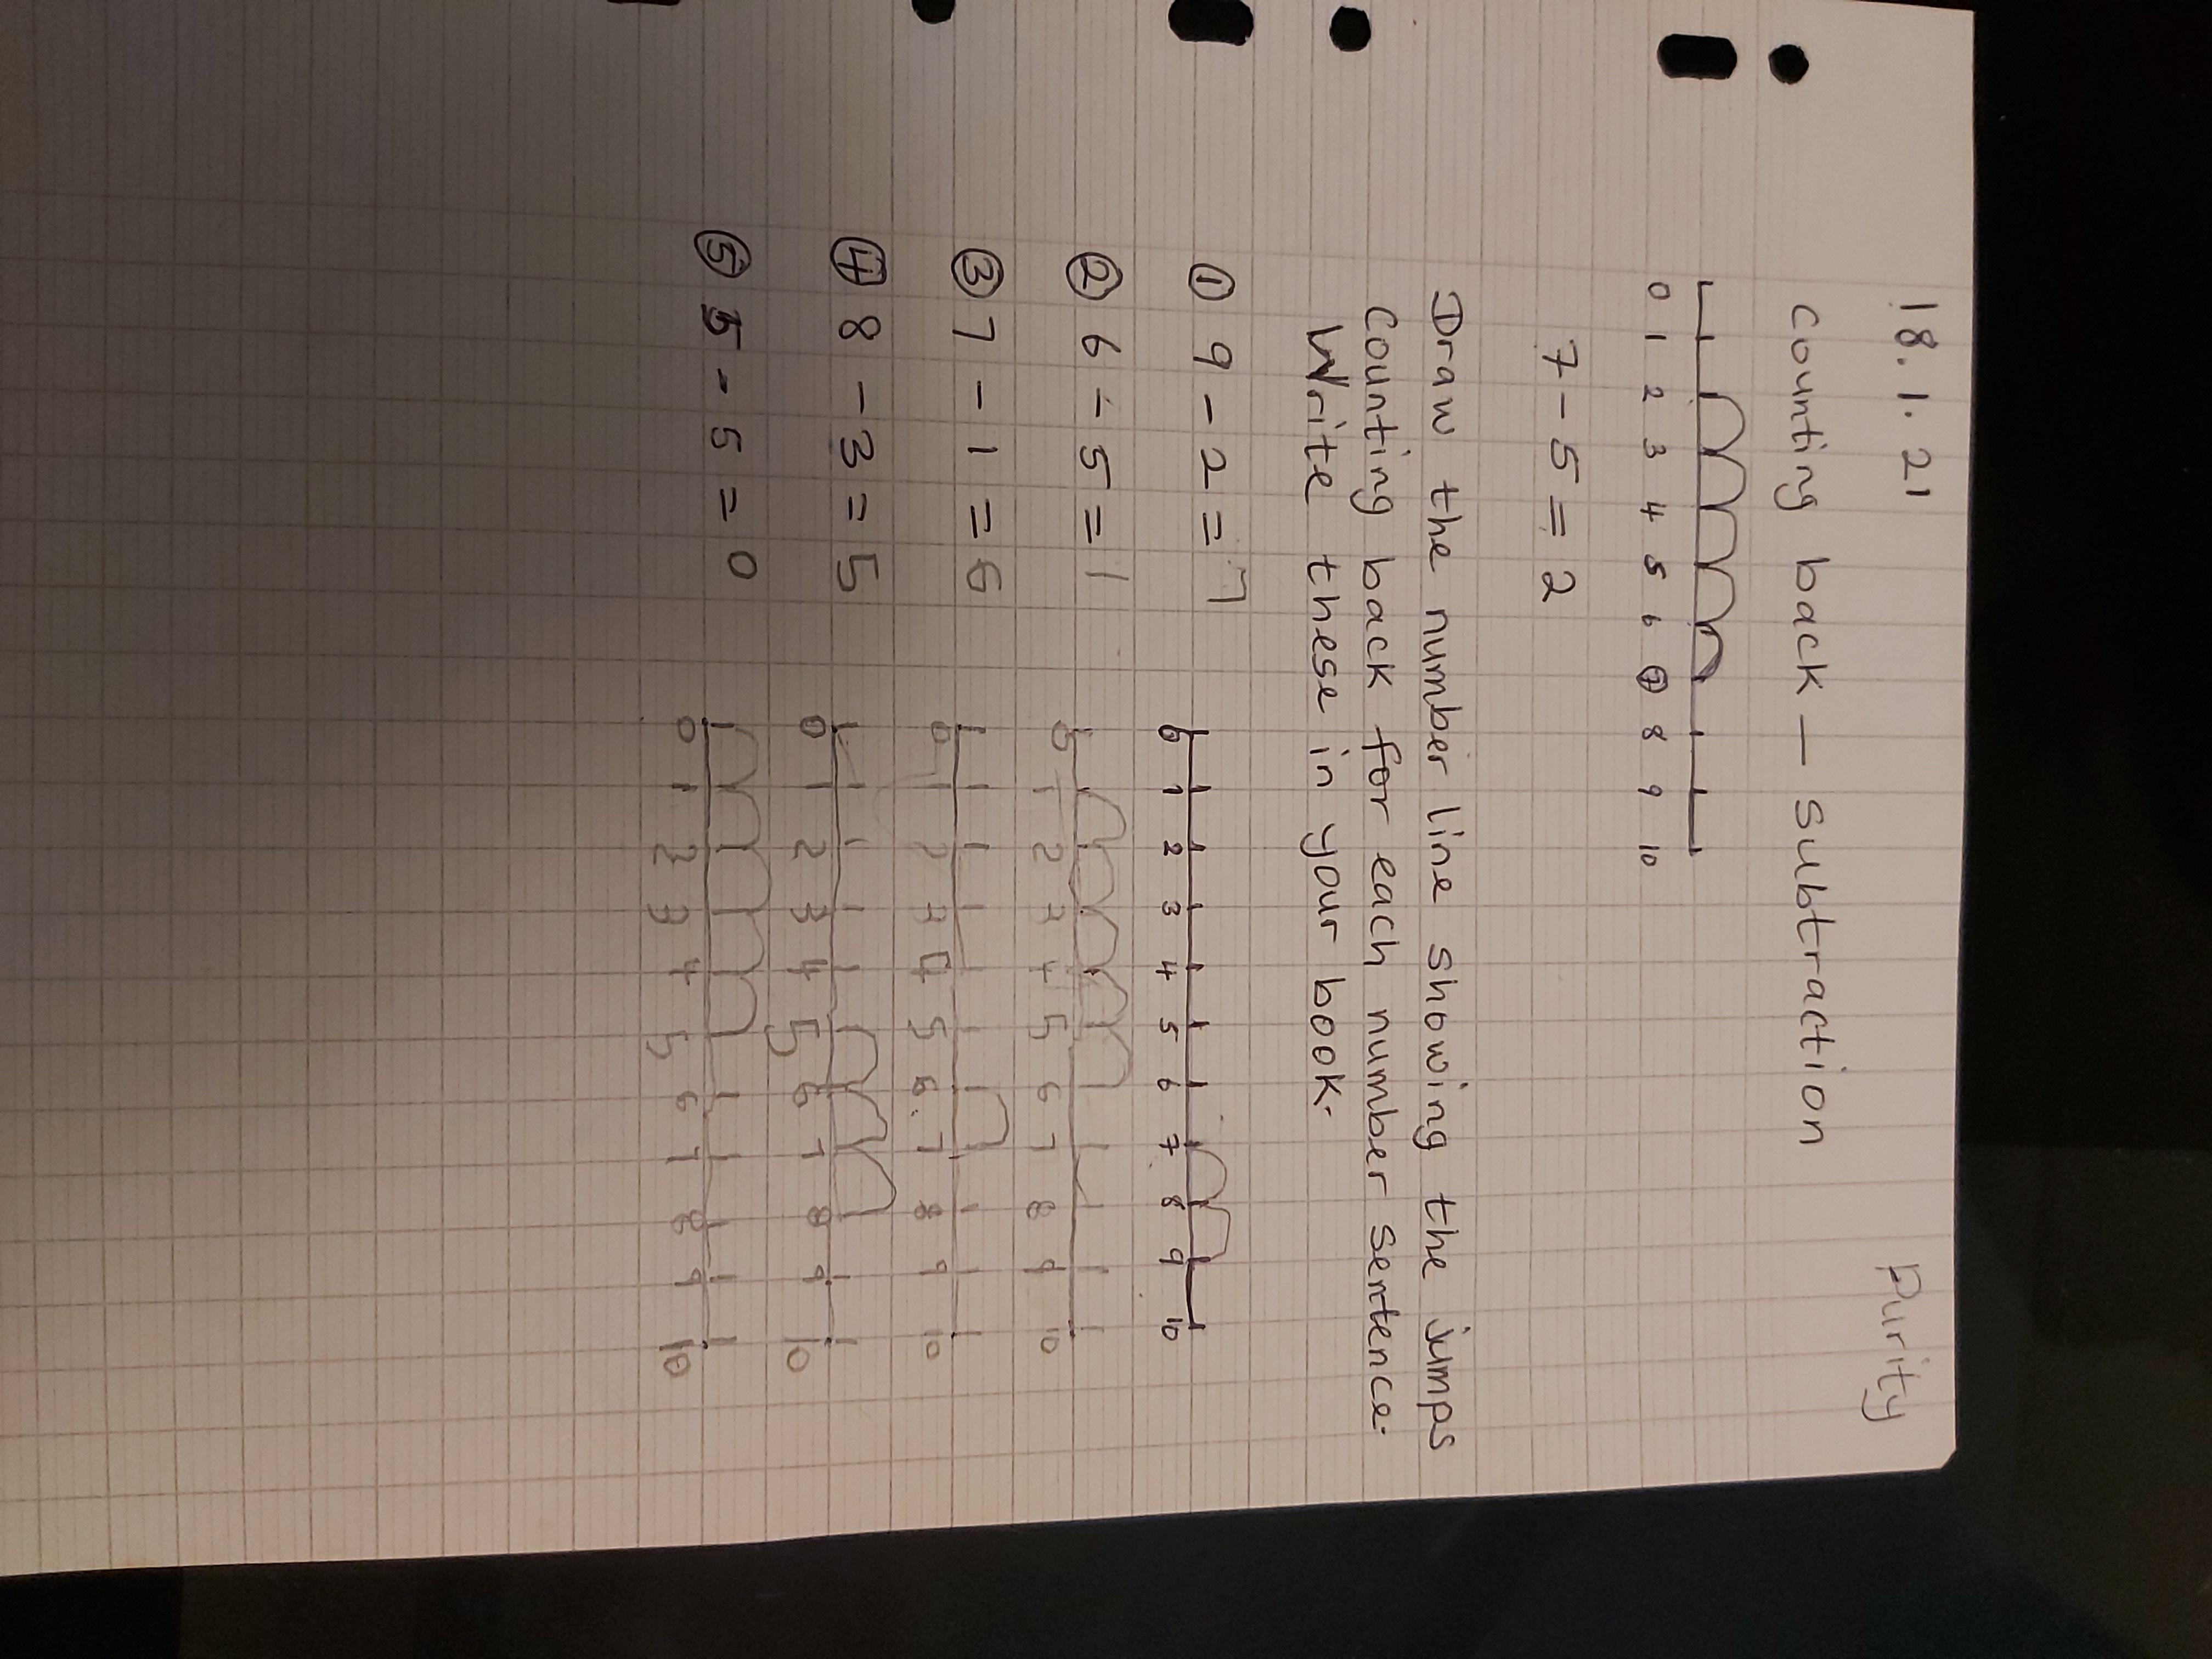 18.1.21
Purity
Counting back – subtraction
0 1 2 3 4 5 6 7 8 9 10
7 - 5 = 2
Draw the number line showing the jumps
Counting back for each number sentence.
Write these in your book.
① 9 - 2 = 7
0 1 2 3 4 5 6 7 8 9 10
② 6 - 5 = 1
0 1 2 3 4 5 6 7 8 9 10
③ 7 - 1 = 6
0 1 2 3 4 5 6 7 8 9 10
④ 8 - 3 = 5
0 1 2 3 4 5 6 7 8 9 10
⑤ 5 - 5 = 0
0 1 2 3 4 5 6 7 8 9 10